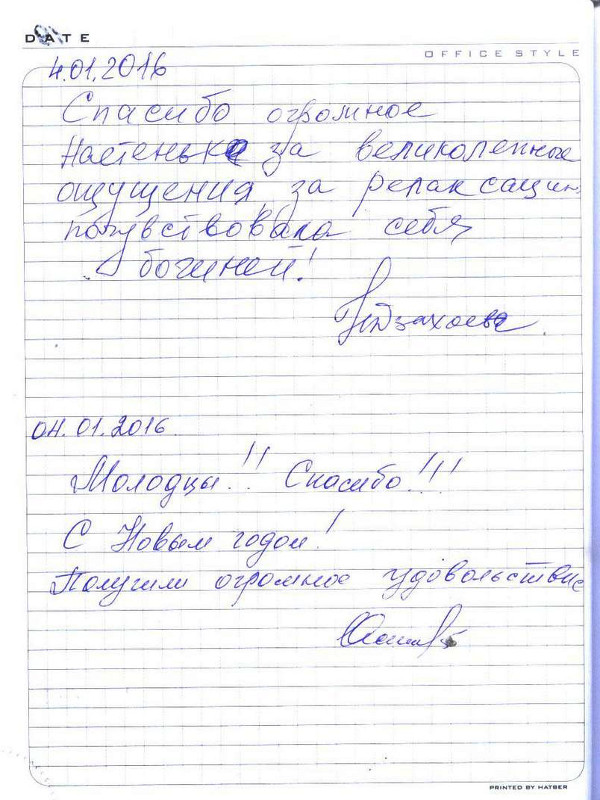 DATE
OFFICE STYLE
4.01.2016
Спасибо огромное
Настеньке за великолепные
ощущения, за релаксацию.
почувствовала себя
богиней!
04.01.2016
Молодцы!! Спасибо!!!
С Новым годом!
Получили огромное удовольствие
PRINTED BY HATBER